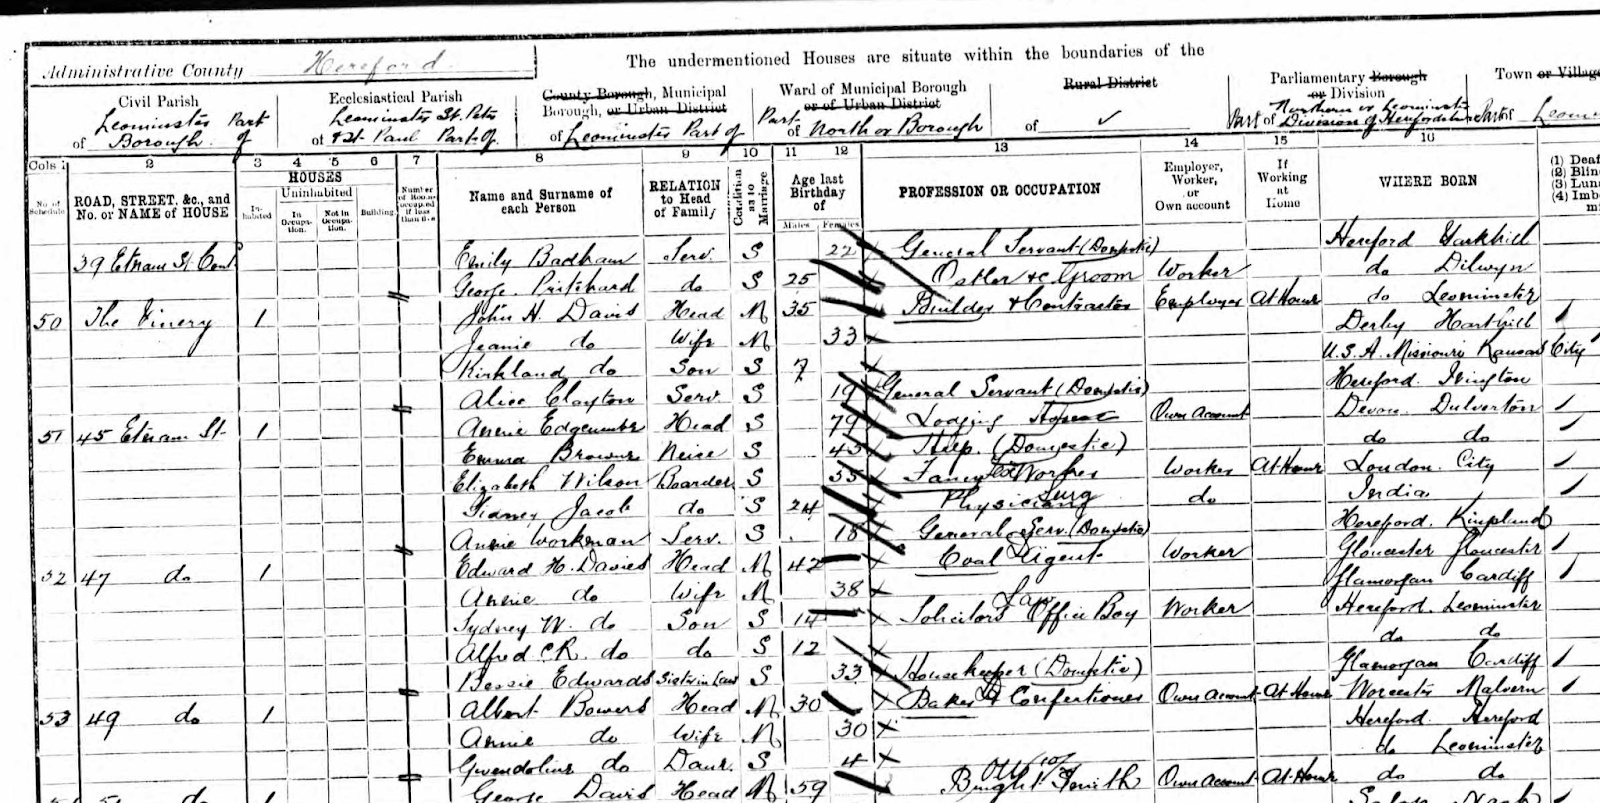 The undermentioned Houses are situate within the boundaries of the
Administrative County Hereford
Civil Parish
of Leominster Part of Borough
Ecclesiastical Parish
of Leominster St. Peter & St. Paul Part of
County Borough, Municipal Borough, or Urban District
of Leominster Part of
Ward of Municipal Borough or of Urban District
Part of North or Borough
Rural District
of ✓
Parliamentary Borough or Division
Part of Northern or Leominster Division of Herefordshire
Town or Villag
Part of Leomin
Cols 1 2 3 4 5 6 7 8 9 10 11 12 13 14 15 16
No. of Schedule
ROAD, STREET, &c., and No. or NAME of HOUSE
HOUSES
Inhabited
Uninhabited
In Occupation.
Not in Occupation.
Building.
Number of Rooms occupied if less than five
Name and Surname of each Person
RELATION to Head of Family
Condition as to Marriage
Age last Birthday of
Males Females
PROFESSION OR OCCUPATION
Employer, Worker, or Own account
If Working at Home
WHERE BORN
(1) Deaf
(2) Blin
(3) Luna
(4) Imbe
39 Etnam St Cont Emily Badham Serv. S 22 General Servant (Domestic) Hereford Yarkhill
George Pritchard do S 25 Ostler &c Groom Worker do Dilwyn
50 The Vinery 1 John H. Davis Head M 35 Builder & Contractor Employer At Home do Leominster
Jeanie do Wife M 33 Derby
Kirkland do Son S 7 U.S.A. Missouri Kansas City
Alice Clayton Serv. S 19 General Servant (Domestic) Hereford. Ivington
51 45 Etnam St. 1 Annie Edgcumbe Head S 79 Lodging House Own Account Devon Dulverton
Emma Browne Neice S 43 Help. (Domestic) do do
Elizabeth Wilson Boarder S 55 Fancy Worker Worker At Home London. City
Sidney Jacob do S 24 Physician Surg do India
Annie Workman Serv. S 18 General Serv. (Domestic) Hereford. Kingsland
52 47 do 1 Edward H. Davies Head M 42 Coal Agent Worker Gloucester Gloucester
Annie do Wife M 38 Glamorgan Cardiff
Sydney W. do Son S 14 Solicitors Law Office Boy Worker Hereford. Leominster
Alfred C.R. do do S 12 do do
Bessie Edwards Sister in Law S 33 Housekeeper (Domestic) Glamorgan Cardiff
53 49 do 1 Albert Bowers Head M 30 Baker & Confectioner Own Account At Home Worcester Malvern
Annie do Wife M 30 Hereford. Hereford
Gwendoline do Daur. S 4 do Leominster
do 1 George Davis Head M 59 Smith Own Account At Home do do